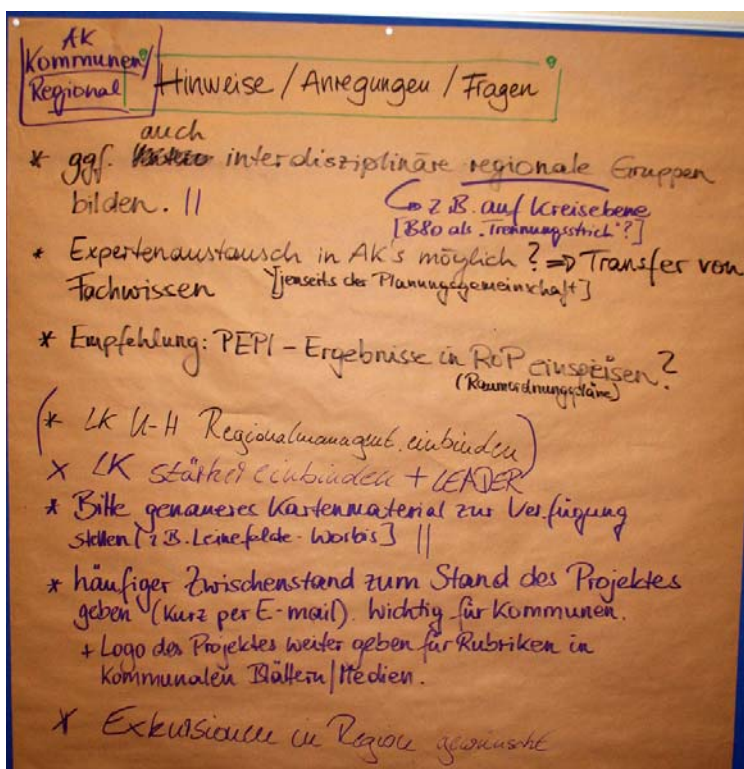 AK
Kommunen/
Regional
Hinweise / Anregungen / Fragen
auch
* ggf. interdisziplinäre regionale Gruppen
bilden. ||
↳ z.B. auf Kreisebene
[B80 als "Trennungsstrich"?]
* Expertenaustausch in AK's möglich? ⇒ Transfer von
Fachwissen [jenseits der Planungsgemeinschaft]
* Empfehlung: PEPL - Ergebnisse in RoP einspeisen?
(Raumordnungspläne)
(* LK U-H Regionalmanagmt. einbinden)
× LK stärker einbinden + LEADER
* Bitte genaueres Kartenmaterial zur Verfügung
stellen [z.B. Leinefelde-Worbis] ||
* häufiger Zwischenstand zum Stand des Projektes
geben (kurz per E-mail). Wichtig für Kommunen.
+ Logo des Projektes weiter geben für Rubriken in
Kommunalen Blättern/Medien.
* Exkursionen in Region gewünscht